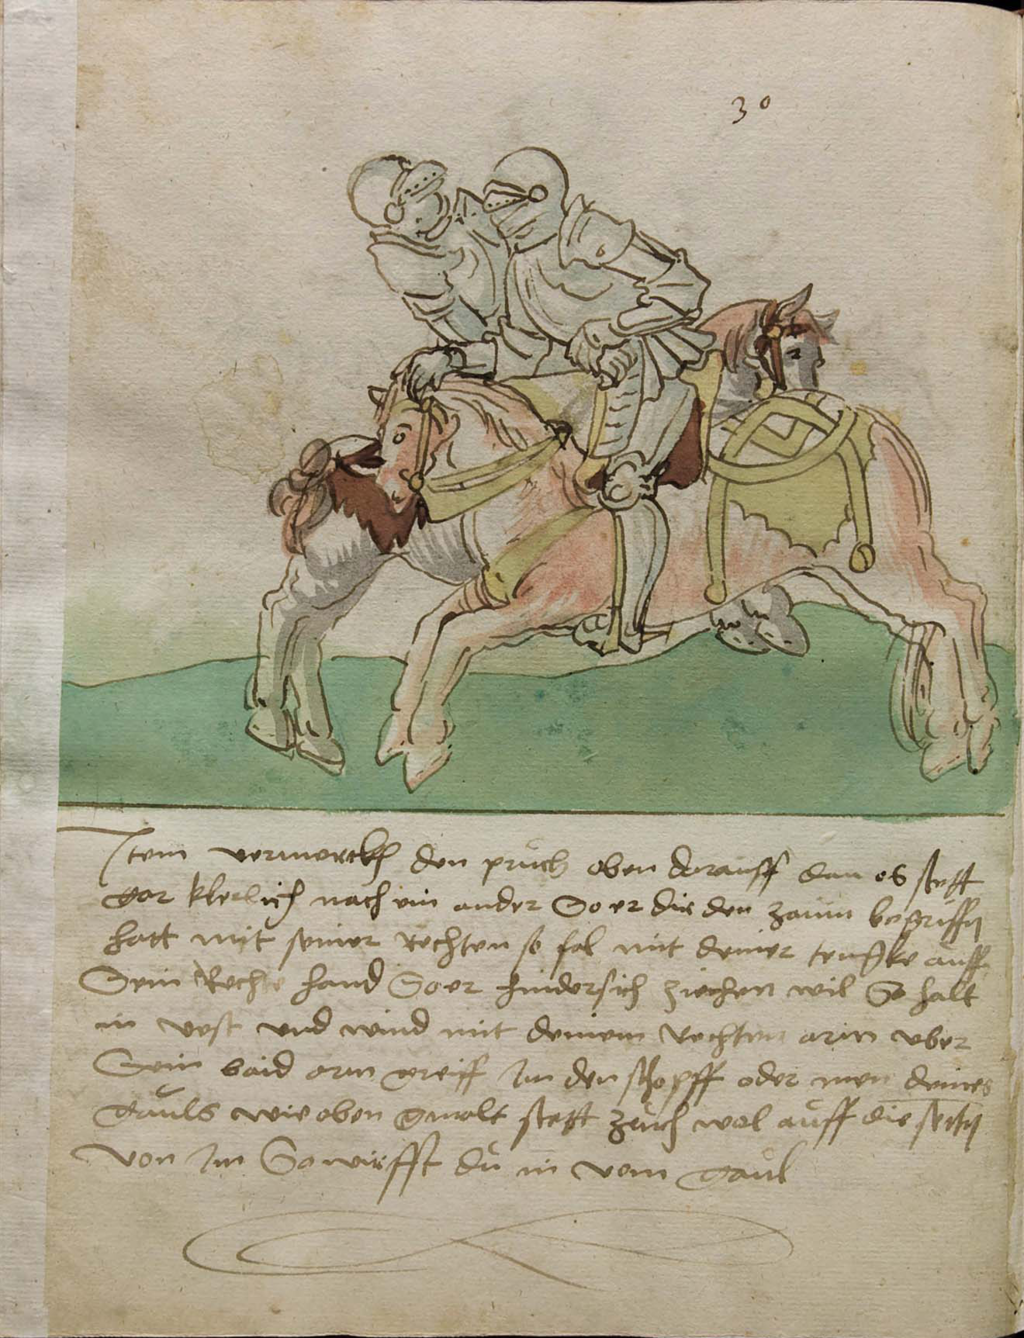 30
Item vermerckh den pruch oben darauff dan es stett
gar klerlich nach ein ander So er dir den zaum begriffen
hatt mit seiner rechten so fal mit deiner tenncke auff
Sein Rechte hand So er hindersich ziechen wil So halt
in vest vnd wind mit deinem rechten arm vber
Sein baid arm greiff im den schopff oder men deines
gauls wie oben gmalt stett zuch wol auff die seiten
von im So wirffst du in vom gaul